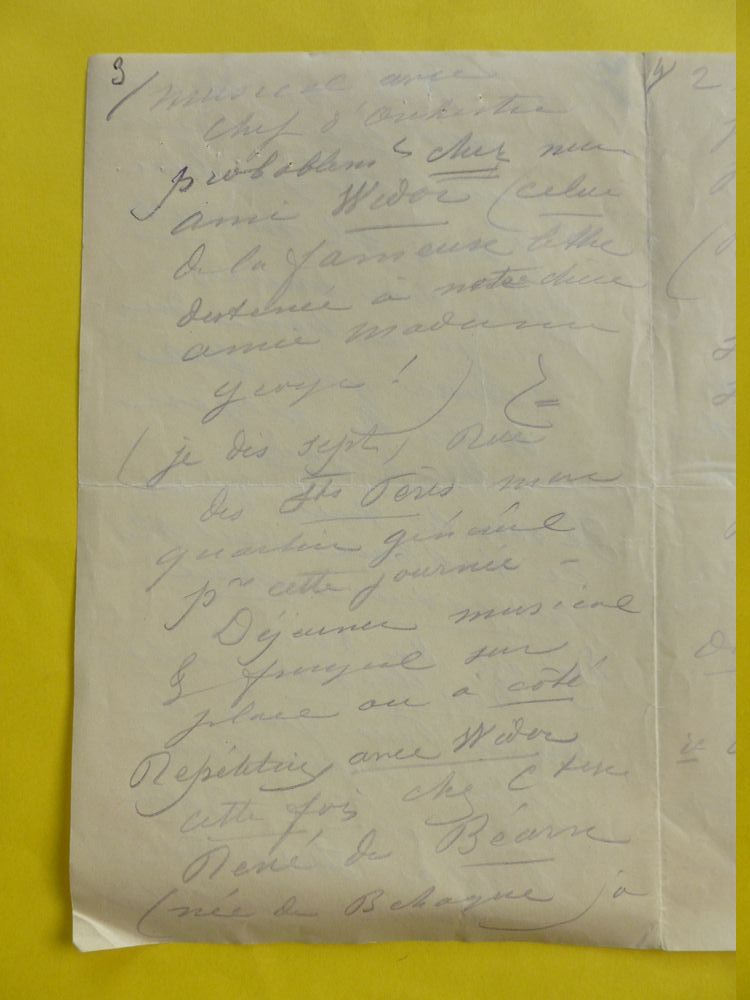 3/ musical avec
chef d'orchestre
probablemt chez mon
ami Widor (celui
de la fameuse lettre
destinée à notre chère
amie madame
George ! )
(je dis sept, Rue
des Sts Pères mon
quartier général
pr cette journée -
Déjeuner musical
& frugal sur
place ou à côté
Répétition avec Widor
cette fois chez Ctesse
René de Béarn
(née de Béhague) ja
4/ 2